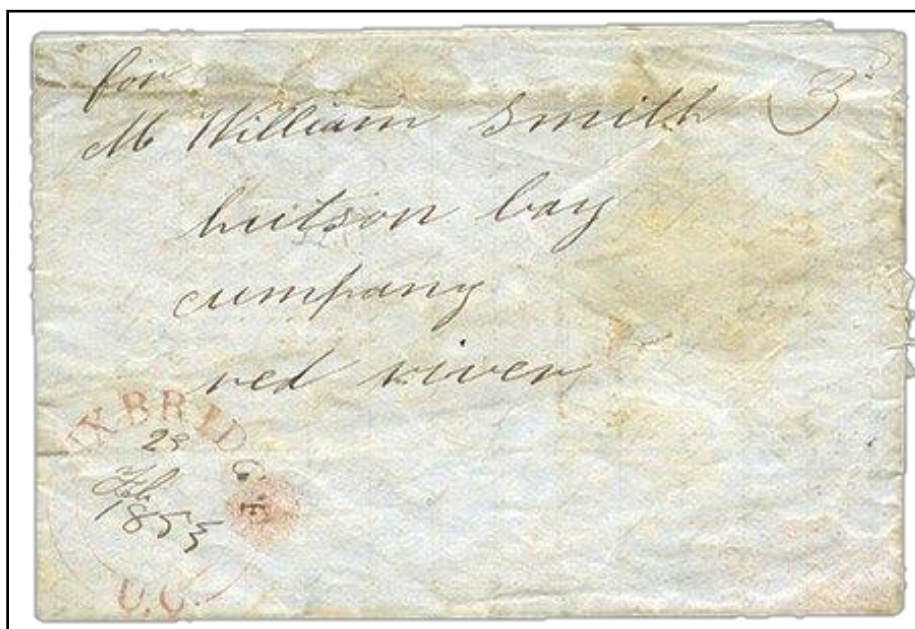 for
Mr William Smith 3
hutson bay
cumpany
red river
UXBRIDGE
Feb
1853
U.C.